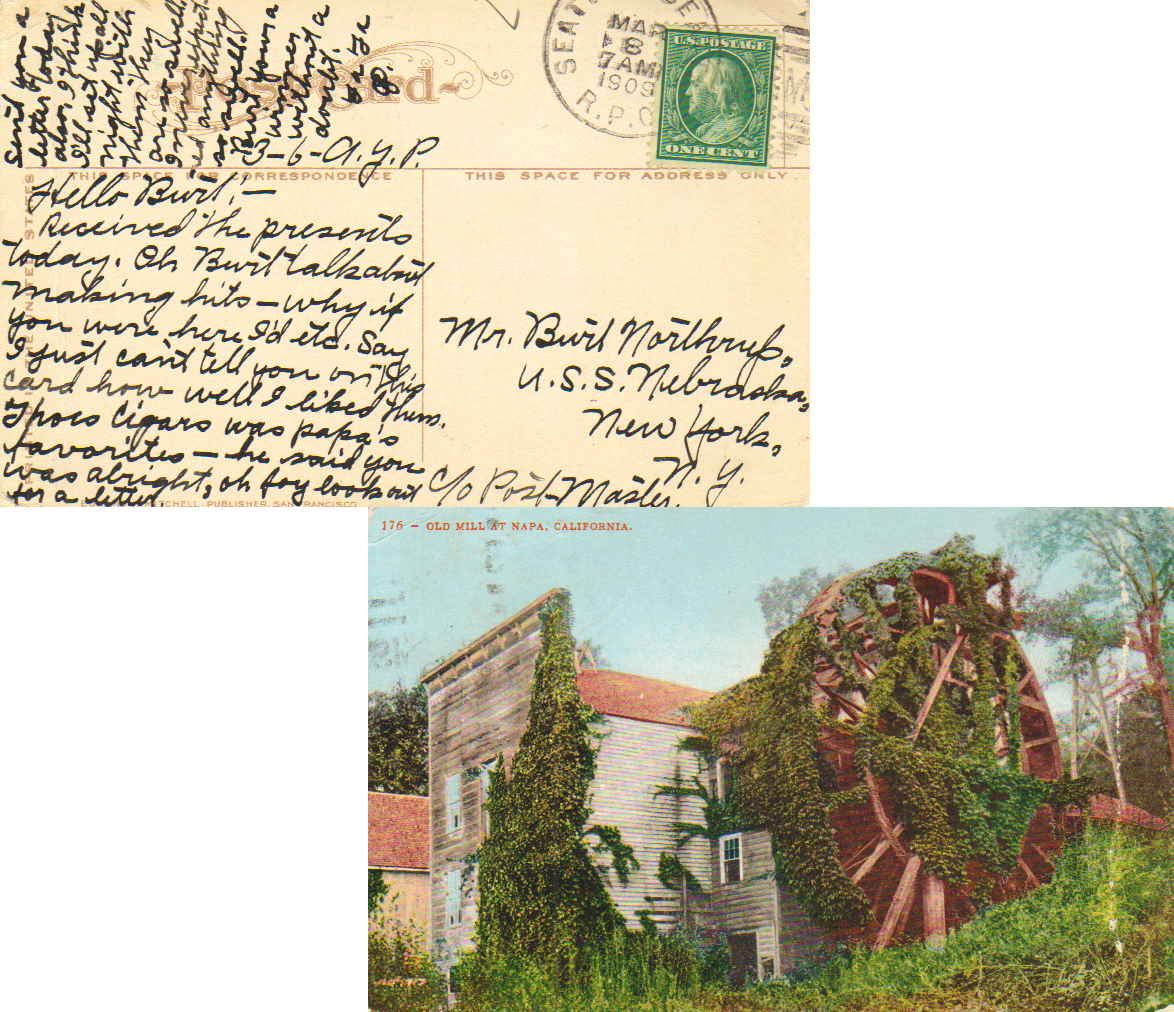 Post Card
THIS SPACE FOR CORRESPONDENCE
THIS SPACE FOR ADDRESS ONLY
SEAT
MAR
8
7 AM
1909
R.P.O.
U.S. POSTAGE
ONE CENT
3-6-A.Y.P.
Hello Burt!—
Received the presents
today. Oh Burt talk about
making hits — why if
you were here I'd etc. Say
I just can't tell you on this
card how well I liked them.
Thoes Cigars was papa's
favorites — he said you
was alright, oh foy look out
for a letter
Sent you a
letter today
also. I think
I'll set up all
night with
them they
are so swell.
I never expect
ed anything
so swell.
Burt your a
winner
without a
doubt.
Mr. Burt Northrup,
U.S.S. Nebraska,
New York,
N.Y.
c/o Post-Master.
UNITED STATES
MITCHELL, PUBLISHER, SAN FRANCISCO
176 – OLD MILL AT NAPA, CALIFORNIA.